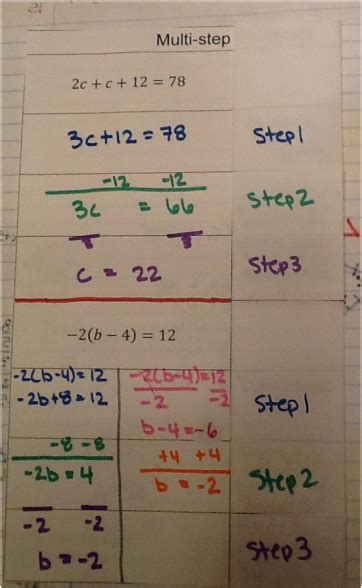 Multi-step
2c + c + 12 = 78
3c+12 = 78 Step1
-12 -12
3c = 66 Step2
3 3
c = 22 Step3
−2(b − 4) = 12
-2(b-4)=12
-2b+8=12
-2(b-4)=12
-2 -2
b-4=-6
Step1
-8 -8
-2b = 4
+4 +4
b = -2
Step2
-2 -2
b = -2
Step3